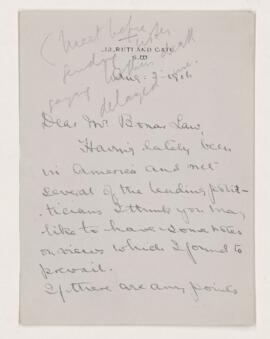 (Meet before
13, RUTLAND GATE,
S.W.
Aug. 3. 1916
saying
delayed me.
Dear Mr. Bonar Law,
Having lately been
in America and met
several of the leading polit-
-ticians I think you may
like to have some notes
on views which I found to
prevail.
If there are any points